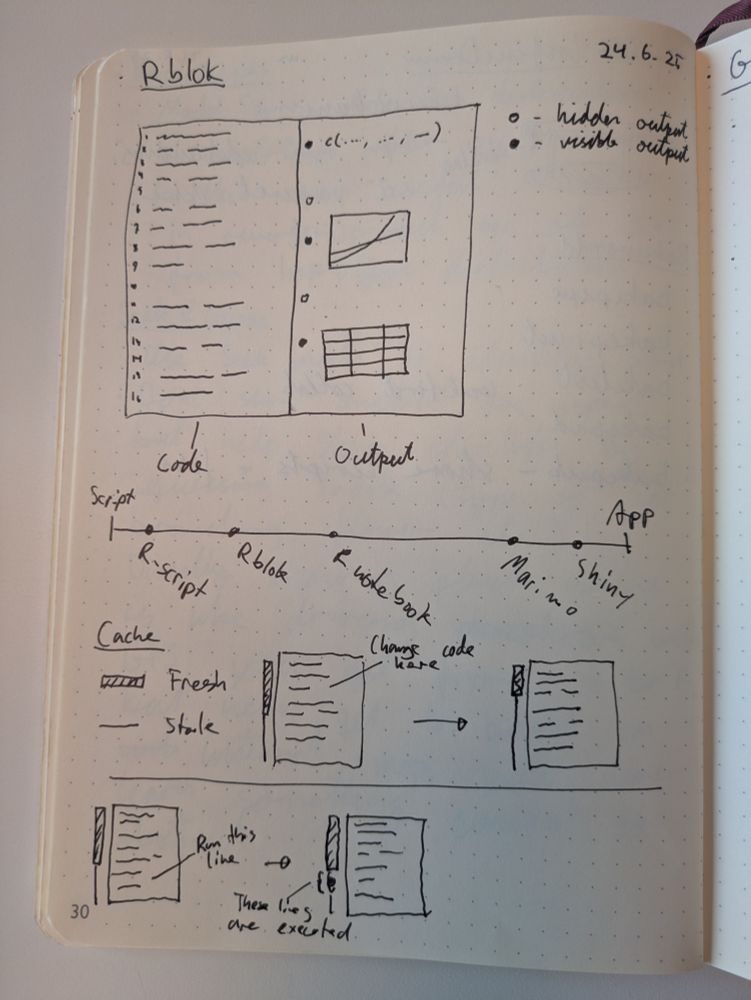 24.6.25
Rblok
o - hidden output
• - visible output
c(..., ..., -)
Code
Output
Script
App
R-script
Rblok
R notebook
Marimo
Shiny
Cache
Fresh
Stale
Change code
here
Run this
line
These lines
are executed
30
G